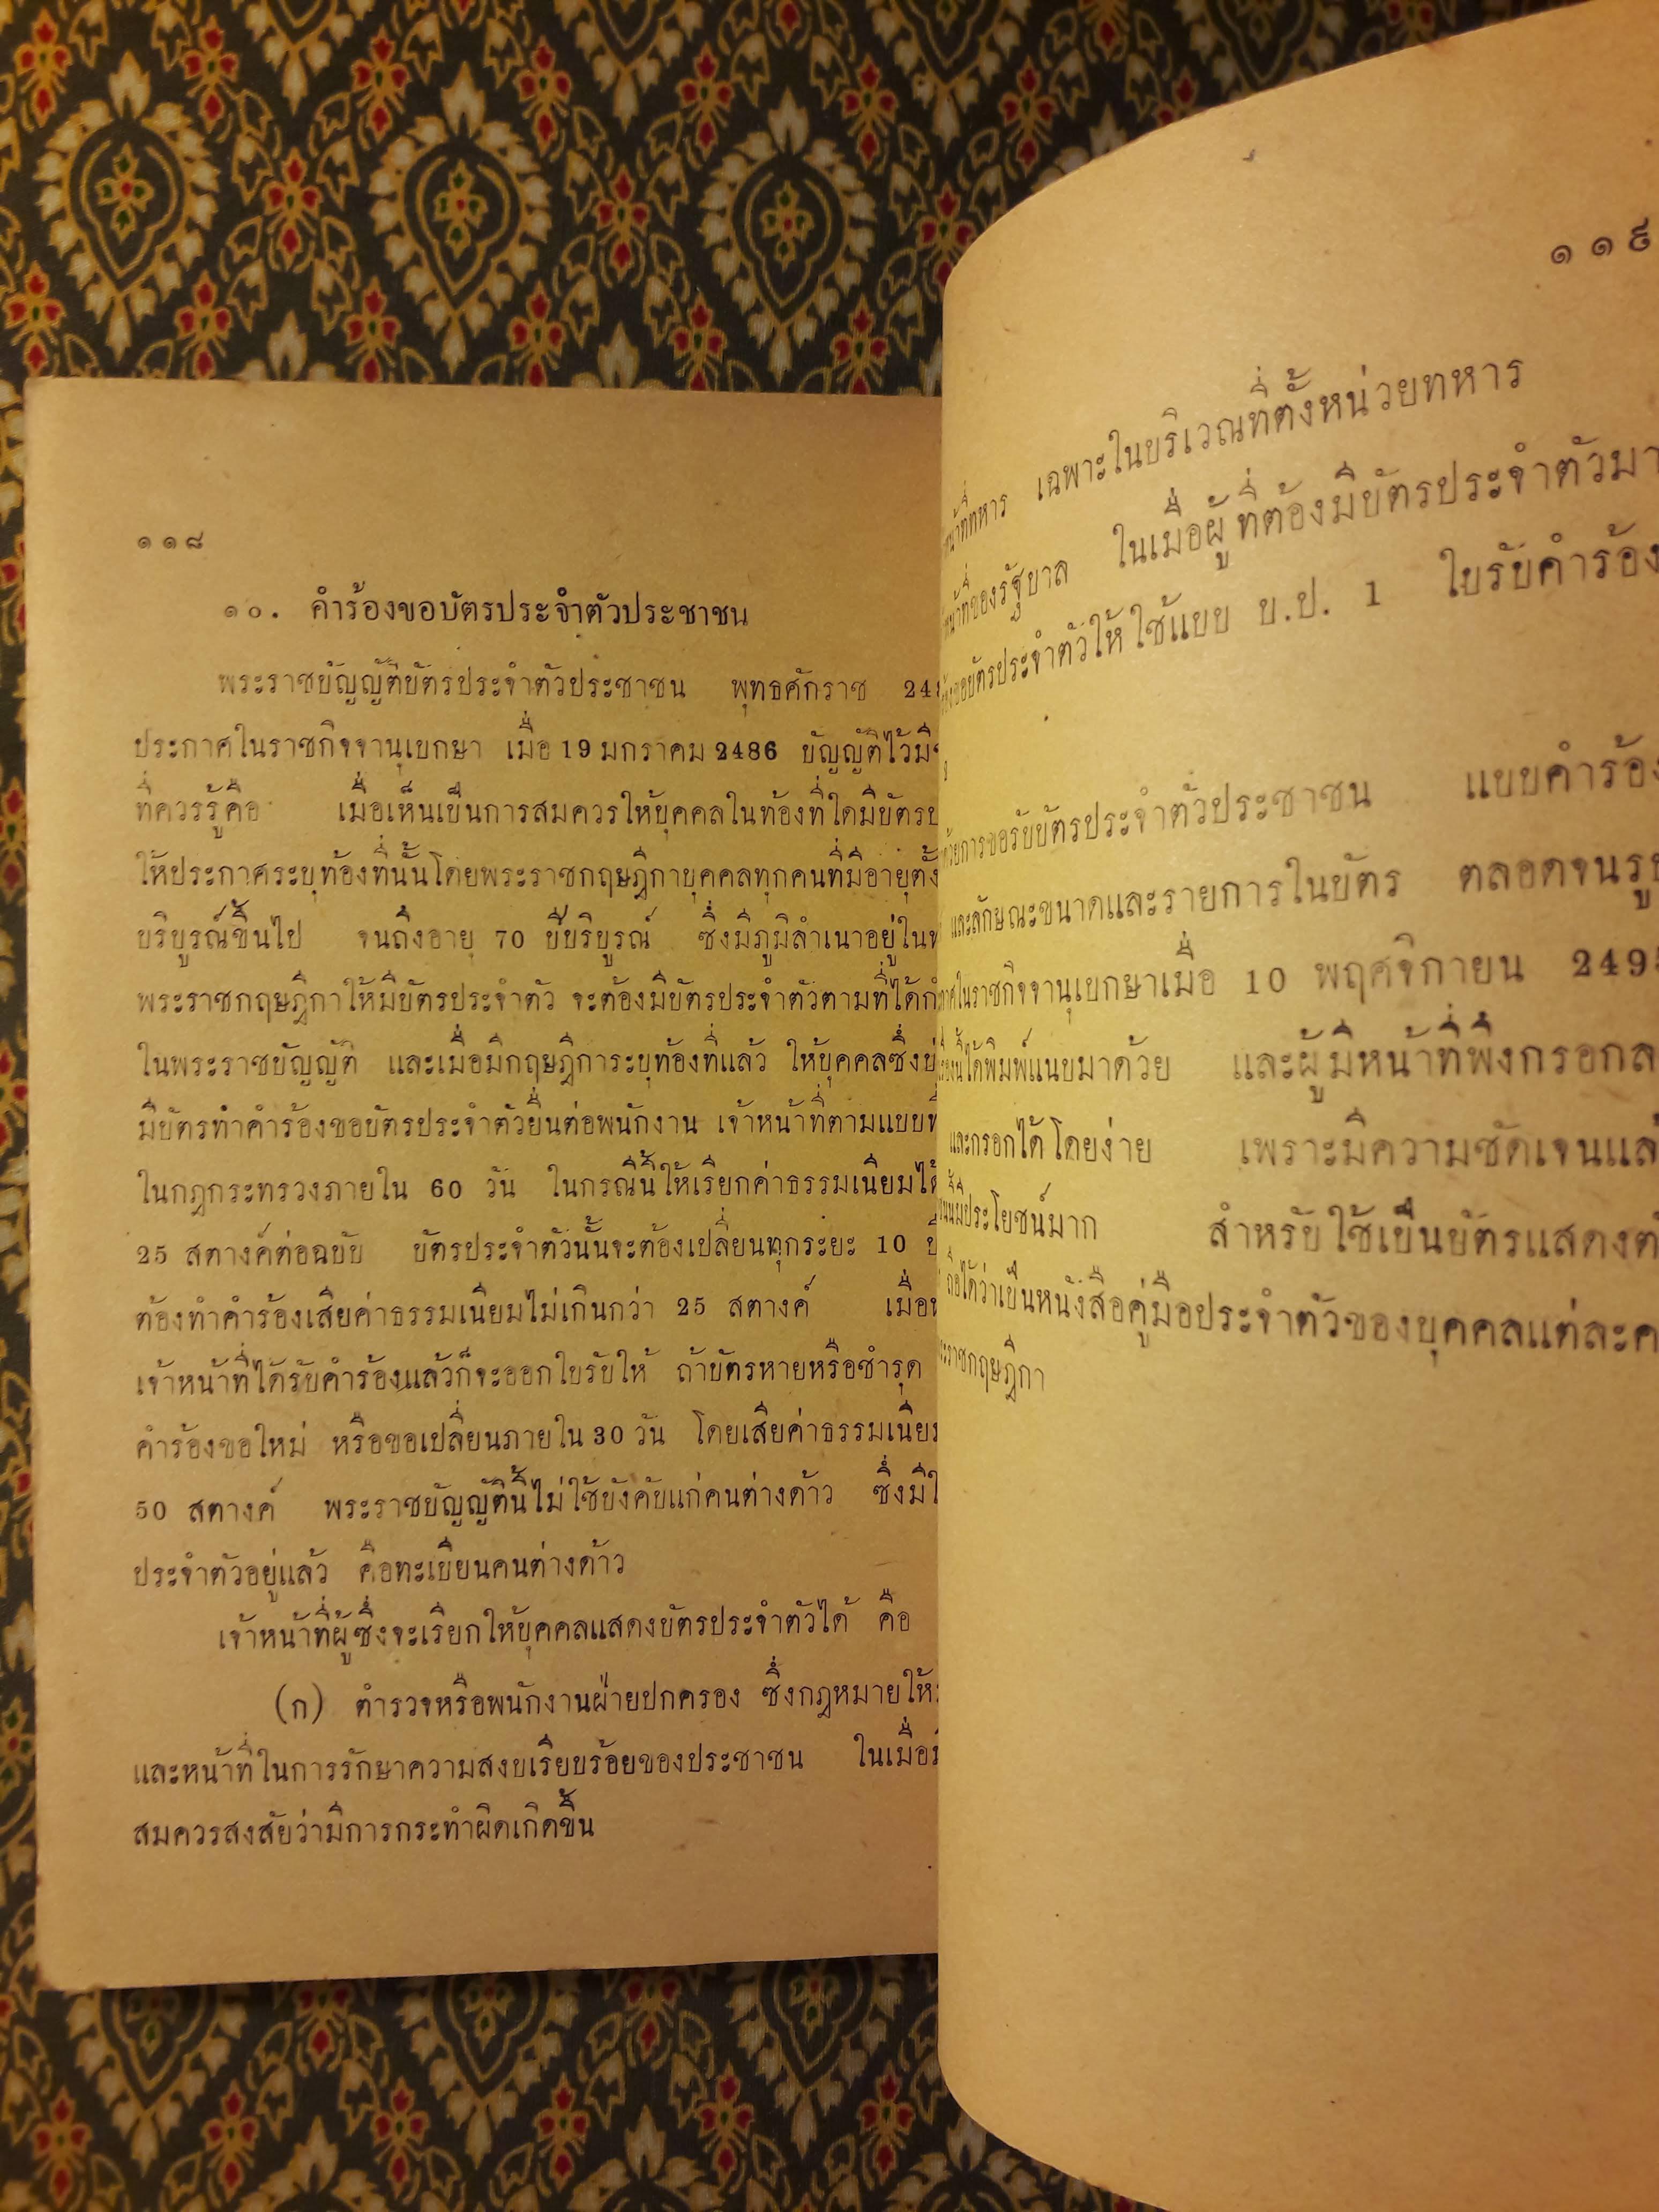 ๑๑๘
๑๐. คำร้องขอบัตรประจำตัวประชาชน
พระราชบัญญัติบัตรประจำตัวประชาชน พุทธศักราช
ประกาศในราชกิจจานุเบกษา เมื่อ 19 มกราคม 2486 บัญญัติไว้
ที่ควรรู้คือ เมื่อเห็นเป็นการสมควรให้บุคคลในท้องที่ใดมีบัตร
ให้ประกาศระบุท้องที่นั้นโดยพระราชกฤษฎีกาบุคคลทุกคนที่มีอายุ
บริบูรณ์ขึ้นไป จนถึงอายุ 70 ปีบริบูรณ์ ซึ่งมีภูมิลำเนาอยู่ใน
พระราชกฤษฎีกาให้มีบัตรประจำตัว จะต้องมีบัตรประจำตัวตามที่ได้
ในพระราชบัญญัติ และเมื่อมีกฤษฎีการะบุท้องที่แล้ว ให้บุคคลซึ่ง
มีบัตรทำคำร้องขอบัตรประจำตัวยื่นต่อพนักงาน เจ้าหน้าที่ตามแบบ
ในกฎกระทรวงภายใน 60 วัน ในกรณีนี้ให้เรียกค่าธรรมเนียมได้
25 สตางค์ต่อฉบับ บัตรประจำตัวนั้นจะต้องเปลี่ยนทุกระยะ 10 ปี
ต้องทำคำร้องเสียค่าธรรมเนียมไม่เกินกว่า 25 สตางค์ เมื่อ
เจ้าหน้าที่ได้รับคำร้องแล้วก็จะออกใบรับให้ ถ้าบัตรหายหรือชำรุด
คำร้องขอใหม่ หรือขอเปลี่ยนภายใน 30 วัน โดยเสียค่าธรรมเนียม
50 สตางค์ พระราชบัญญัตินี้ไม่ใช้บังคับแก่คนต่างด้าว ซึ่งมี
ประจำตัวอยู่แล้ว คือทะเบียนคนต่างด้าว
เจ้าหน้าที่ผู้ซึ่งจะเรียกให้บุคคลแสดงบัตรประจำตัวได้ คือ
(ก) ตำรวจหรือพนักงานฝ่ายปกครอง ซึ่งกฎหมายให้
และหน้าที่ในการรักษาความสงบเรียบร้อยของประชาชน ในเมื่อ
สมควรสงสัยว่ามีการกระทำผิดเกิดขึ้น
๑๑๙
หน้าที่ทหาร เฉพาะในบริเวณที่ตั้งหน่วยทหาร
หน้าที่ของรัฐบาล ในเมื่อผู้ที่ต้องมีบัตรประจำตัวมา
ขอบัตรประจำตัวให้ใช้แบบ บ.ป. 1 ใบรับคำร้อง
ด้วยการขอรับบัตรประจำตัวประชาชน แบบคำร้อง
และลักษณะขนาดและรายการในบัตร ตลอดจนรูป
ในราชกิจจานุเบกษาเมื่อ 10 พฤศจิกายน 2495
นี้ได้พิมพ์แนบมาด้วย และผู้มีหน้าที่พึงกรอก
และกรอกได้โดยง่าย เพราะมีความชัดเจน
มีประโยชน์มาก สำหรับใช้เป็นบัตรแสดง
ถือได้ว่าเป็นหนังสือคู่มือประจำตัวของบุคคลแต่ละ
ราชกฤษฎีกา